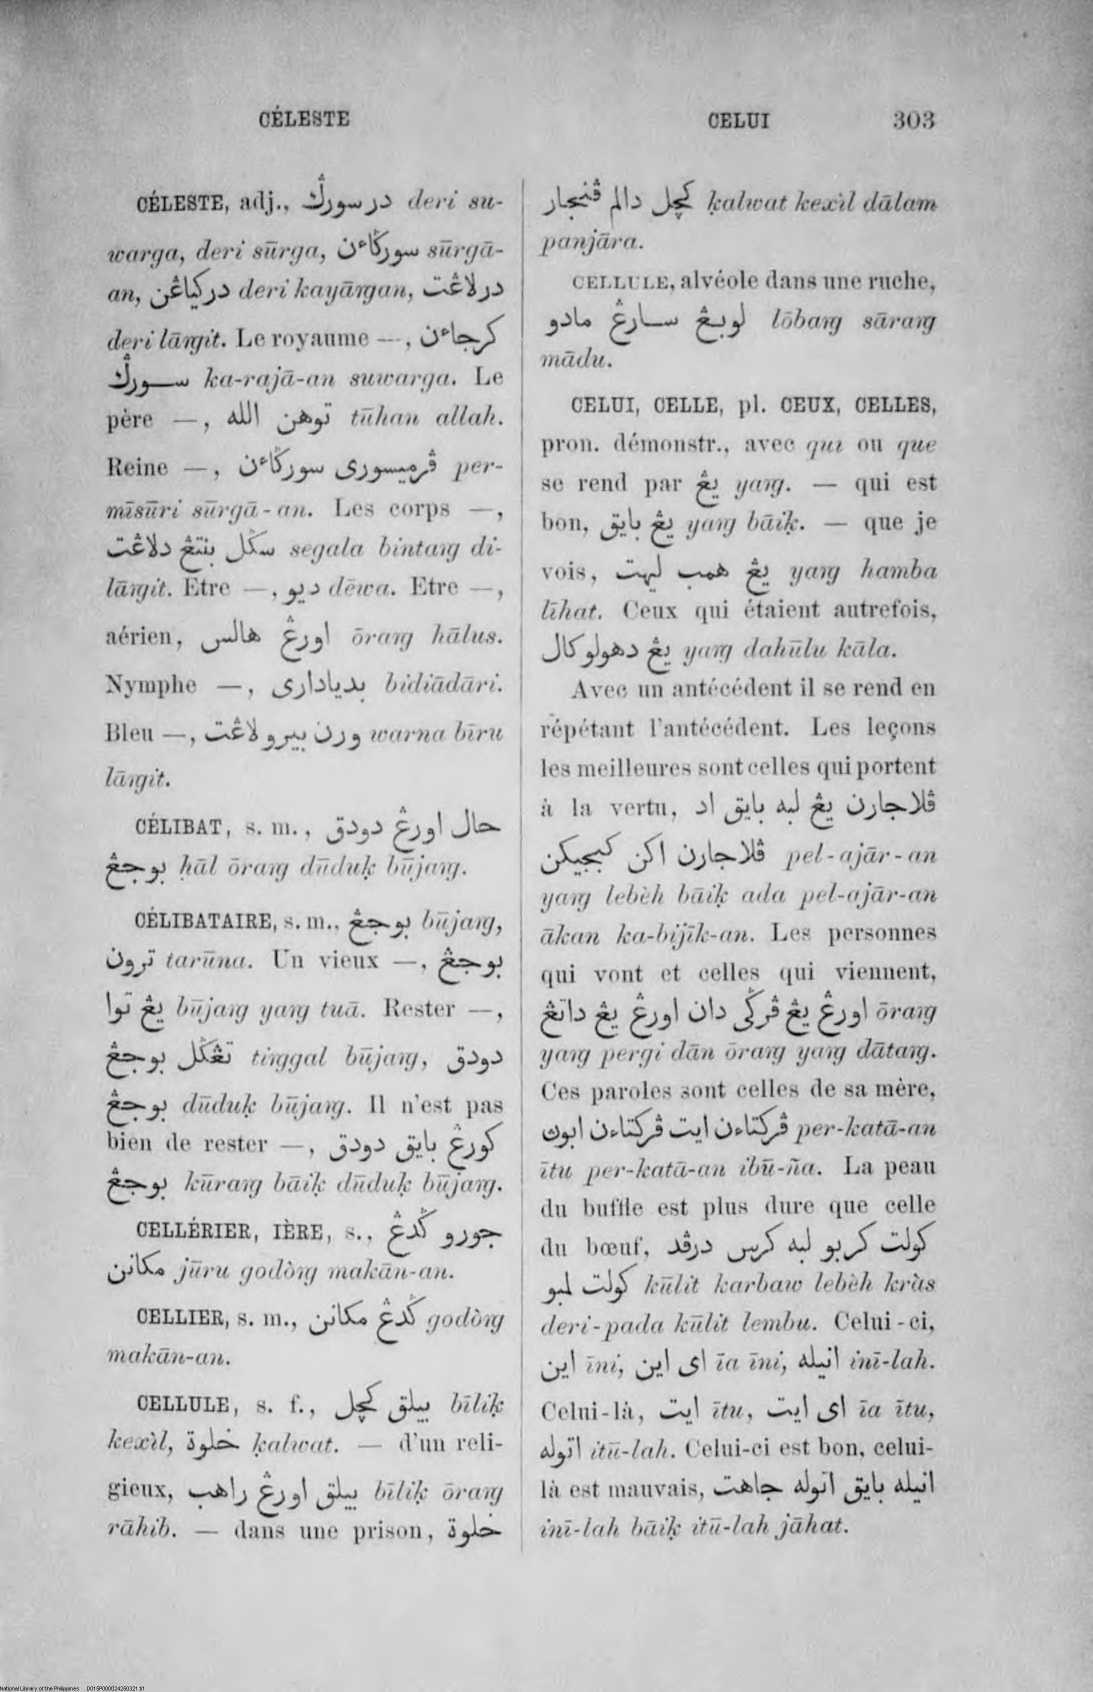 CÉLESTE
CELUI 303
CÉLESTE, adj., در سورݢ deri su-
warga, deri sūrga, سورݢاءن sūrgā-
an, درکياڠن deri kayāṃgan, درلاڠت
deri lāṃgit. Le royaume —, کرجاءن
سورݢ ka-rajā-an suwarga. Le
père —, توهن الله tūhan allah.
Reine —, ڤرميسوری سورݢاءن per-
mīsūri sūrgā-an. Les corps —,
سݢل بنتڠ دلاڠت segala bintaṃg di-
lāṃgit. Etre —, ديو dēwa. Etre —,
aérien, اورڠ هالس ōraṃg hālus.
Nymphe —, بدياداری bidiādāri.
Bleu —, ورن بيرو لاڠت warna bīru
lāṃgit.
CÉLIBAT, s. m., حال اورڠ دودق
بوجڠ ḥāl ōraṃg dūduḳ būjaṃg.
CÉLIBATAIRE, s. m., بوجڠ būjaṃg,
ترون tarūna. Un vieux —, بوجڠ
يڠ توا būjaṃg yaṃg tuā. Rester —,
تڠݢل بوجڠ tiṃggal būjaṃg, دودق
بوجڠ dūduḳ būjaṃg. Il n'est pas
bien de rester —, کورڠ بايق دودق
بوجڠ kūraṃg bāiḳ dūduḳ būjaṃg.
CELLÉRIER, IÈRE, s., جورو ݢدڠ
مکانن jūru godòṃg makān-an.
CELLIER, s. m., ݢدڠ مکانن godòṃg
makān-an.
CELLULE, s. f., بيلق کچل bīliḳ
kexìl, خلوة ḳalwat. — d'un reli-
gieux, بيلق اورڠ راهب bīliḳ ōraṃg
rāhib. — dans une prison, خلوة
کچل دالم ڤنجار ḳalwat kexìl dālam
panjāra.
CELLULE, alvéole dans une ruche,
لوبڠ سارڠ مادو lōbaṃg sāraṃg
mādu.
CELUI, CELLE, pl. CEUX, CELLES,
pron. démonstr., avec qui ou que
se rend par يڠ yaṃg. — qui est
bon, يڠ بايق yaṃg bāiḳ. — que je
vois, يڠ همب ليهت yaṃg hamba
līhat. Ceux qui étaient autrefois,
يڠ دهولو کال yaṃg dahūlu kāla.
Avec un antécédent il se rend en
répétant l'antécédent. Les leçons
les meilleures sont celles qui portent
à la vertu, ڤلاجارن يڠ لبه بايق اد
ڤلاجارن اکن کبجيکن pel-ajār-an
yaṃg lebèh bāiḳ ada pel-ajār-an
ākan ka-bijīk-an. Les personnes
qui vont et celles qui viennent,
اورڠ يڠ ڤرݢی دان اورڠ يڠ داتڠ ōraṃg
yaṃg pergi dān ōraṃg yaṃg dātaṃg.
Ces paroles sont celles de sa mère,
ڤرکتاءن ايت ڤرکتاءن ابوڽ per-katā-an
ītu per-katā-an ibū-ña. La peau
du buffle est plus dure que celle
du bœuf, کولت کربو لبه کرس درڤد
کولت لمبو kūlit karbaw lebèh kràs
deri-pada kūlit lembu. Celui-ci,
اين īni, ای اين īa īni, انيله inī-lah.
Celui-là, ايت ītu, ای ايت īa ītu,
اتوله itū-lah. Celui-ci est bon, celui-
là est mauvais, انيله بايق اتوله جاهت
inī-lah bāiḳ itū-lah jāhat.
National Library of the Philippines